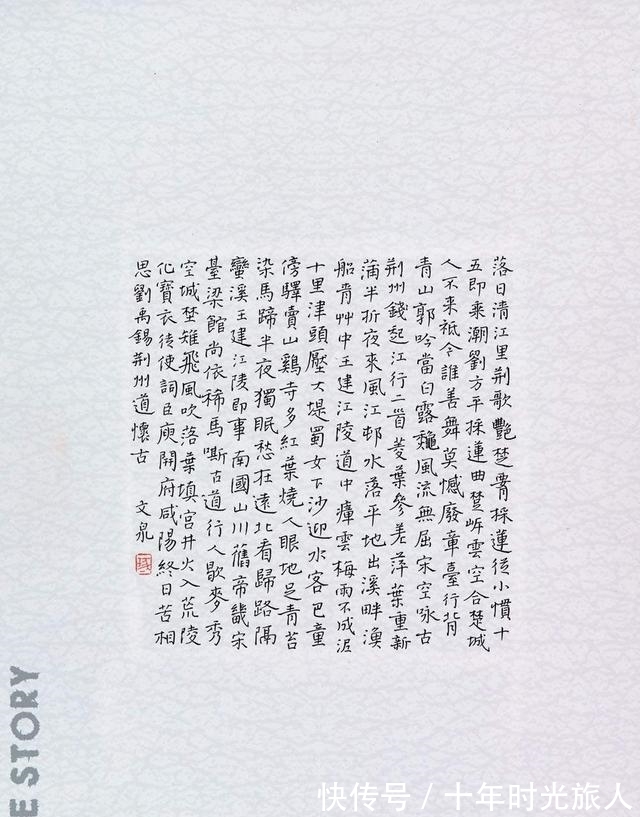 落日清江里荆歌艷楚䙅採蓮從小慣十
五即乘潮劉方平採蓮曲楚岍雲空合楚城
人不來祗今誰善舞莫憾廢章臺行背
青山郭吟當白露龝風流無屈宋空咏古
荆州錢起江行二首菱葉參差萍葉重新
蒲半折夜來風江邨水落平地出溪畔漁
船青艸中王建江陵道中瘴雲梅雨不成泥
十里津頭壓大堤蜀女下沙迎水客巴童
傍驛賣山鷄寺多紅葉燒人眼地足青苔
染馬蹄半夜獨眠愁在遠北看歸路隔
蠻溪王建江陵即事南國山川舊帝畿宋
臺梁館尚依稀馬嘶古道行人歇麥秀
空城埜雉飛風吹落葉填宮井火入荒陵
化寶衣徒使詞臣庾開府咸陽終日苦相
思劉禹錫荆州道懷古
文泉
E STORY
快传号/十年时光旅人